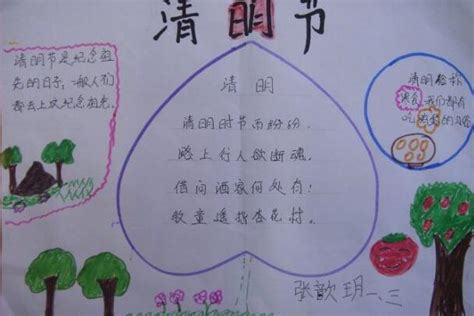 清明节
清明节是纪念祖
先的日子,一般人们
都去上坟纪念祖先。
清明
清明时节雨纷纷,
路上行人欲断魂。
借问酒家何处有?
牧童遥指杏花村。
清明俗称
寒食,我们都有
吃
的习俗
张歆玥 一、三